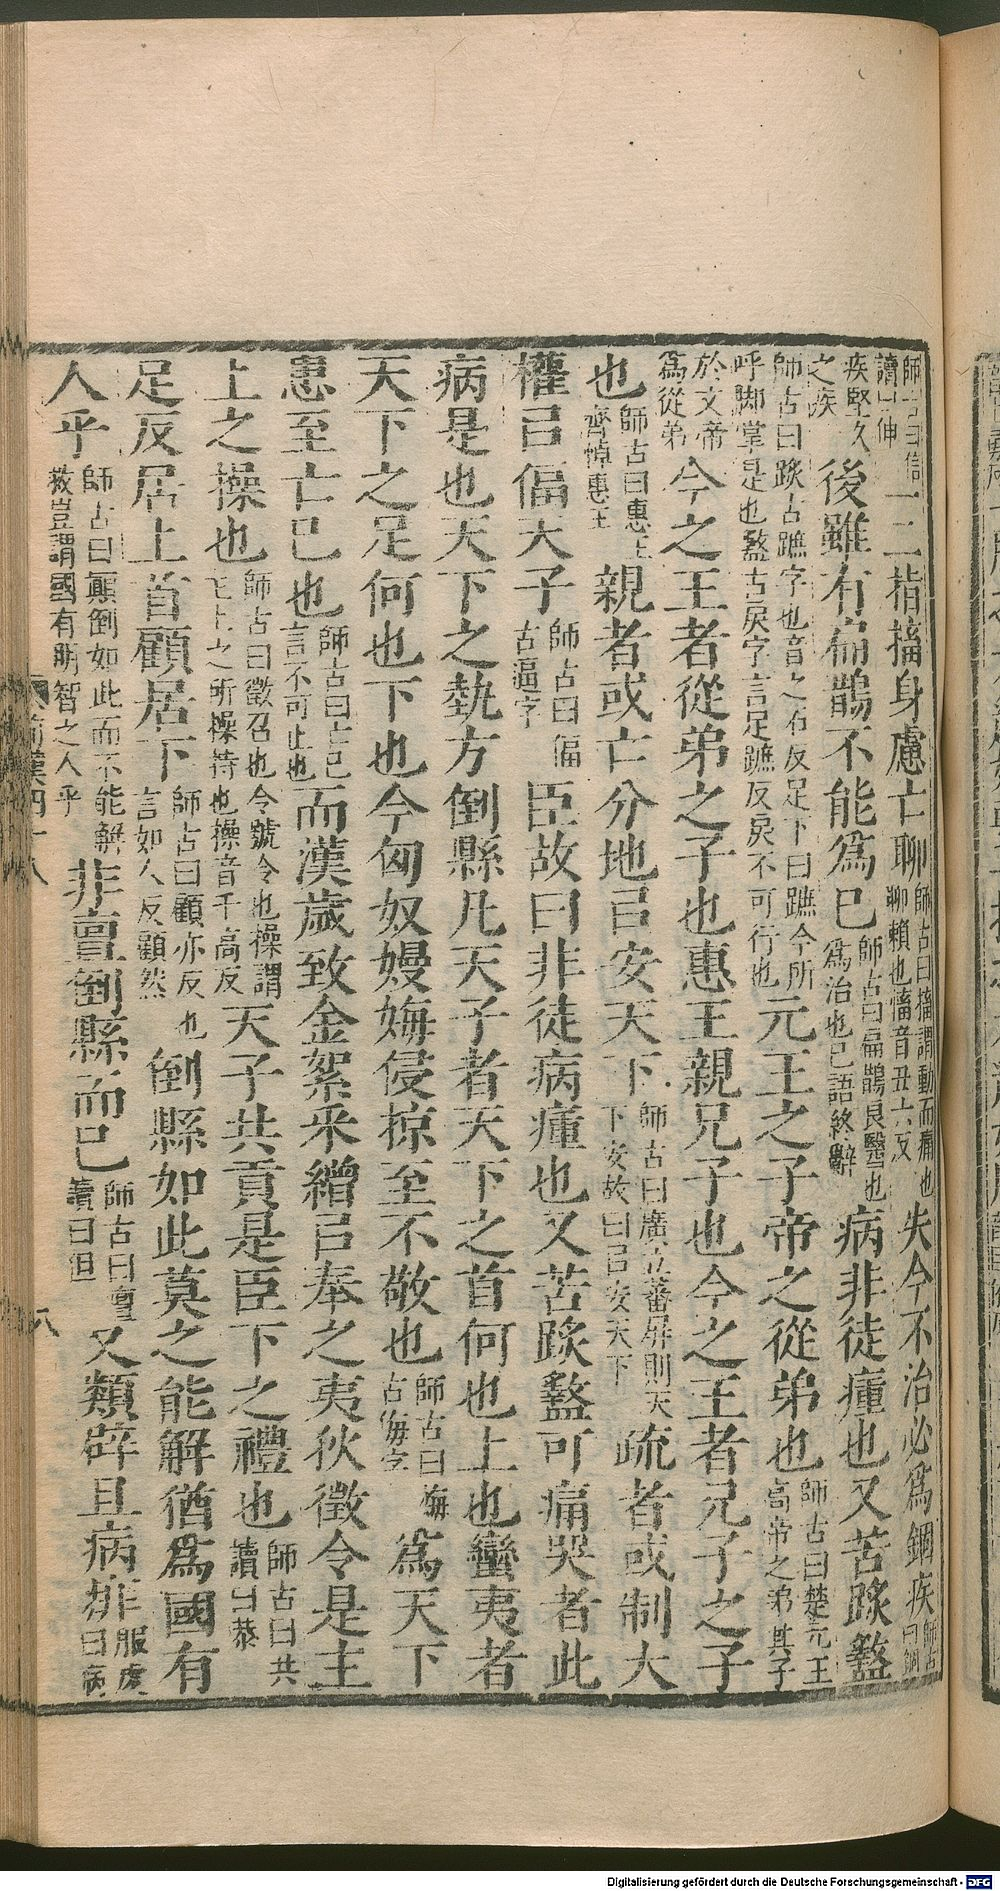 師古曰信讀曰伸一二指搐身慮亡聊師古曰搐謂動而痛也聊賴也搐音丑六反失今不治必爲錮疾師古曰錮
疾堅久之疾後雖有扁鵲不能爲已師古曰扁鵲良醫也爲治也已語終辭病非徒瘇也又苦𨂂盭
師古曰𨂂古蹠字也音之石反足下曰蹠今所呼脚掌是也盭古戾字言足蹠反戾不可行也元王之子帝之從弟也師古曰楚元王高帝之弟其子
於文帝爲從弟今之王者從弟之子也惠王親兄子也今之王者兄子之子
也師古曰惠王齊悼惠王親者或亡分地㠯安天下師古曰廣立蕃屏則天下安故曰㠯安天下疏者或制大
權㠯偪天子師古曰偪古逼字臣故曰非徒病瘇也又苦𨂂盭可痛哭者此
病是也天下之埶方倒縣凡天子者天下之首何也上也蠻夷者
天下之足何也下也今匈奴嫚娒侵掠至不敬也師古曰娒古侮字爲天下
患至亡已也師古曰亡已言不可止也而漢歲致金絮采繒㠯奉之夷狄徵令是主
上之操也師古曰徵召也令號令也操謂主上之所操持也操音千高反天子共貢是臣下之禮也師古曰共讀曰恭
足反居上首顧居下師古曰顧亦反也言如人反顧然倒縣如此莫之能解猶爲國有
人乎師古曰顚倒如此而不能解救豈謂國有明智之人乎非亶倒縣而已師古曰亶讀曰但又類辟且病痱服虔曰病
前漢四十八
八
Digitalisierung gefördert durch die Deutsche Forschungsgemeinschaft - DFG